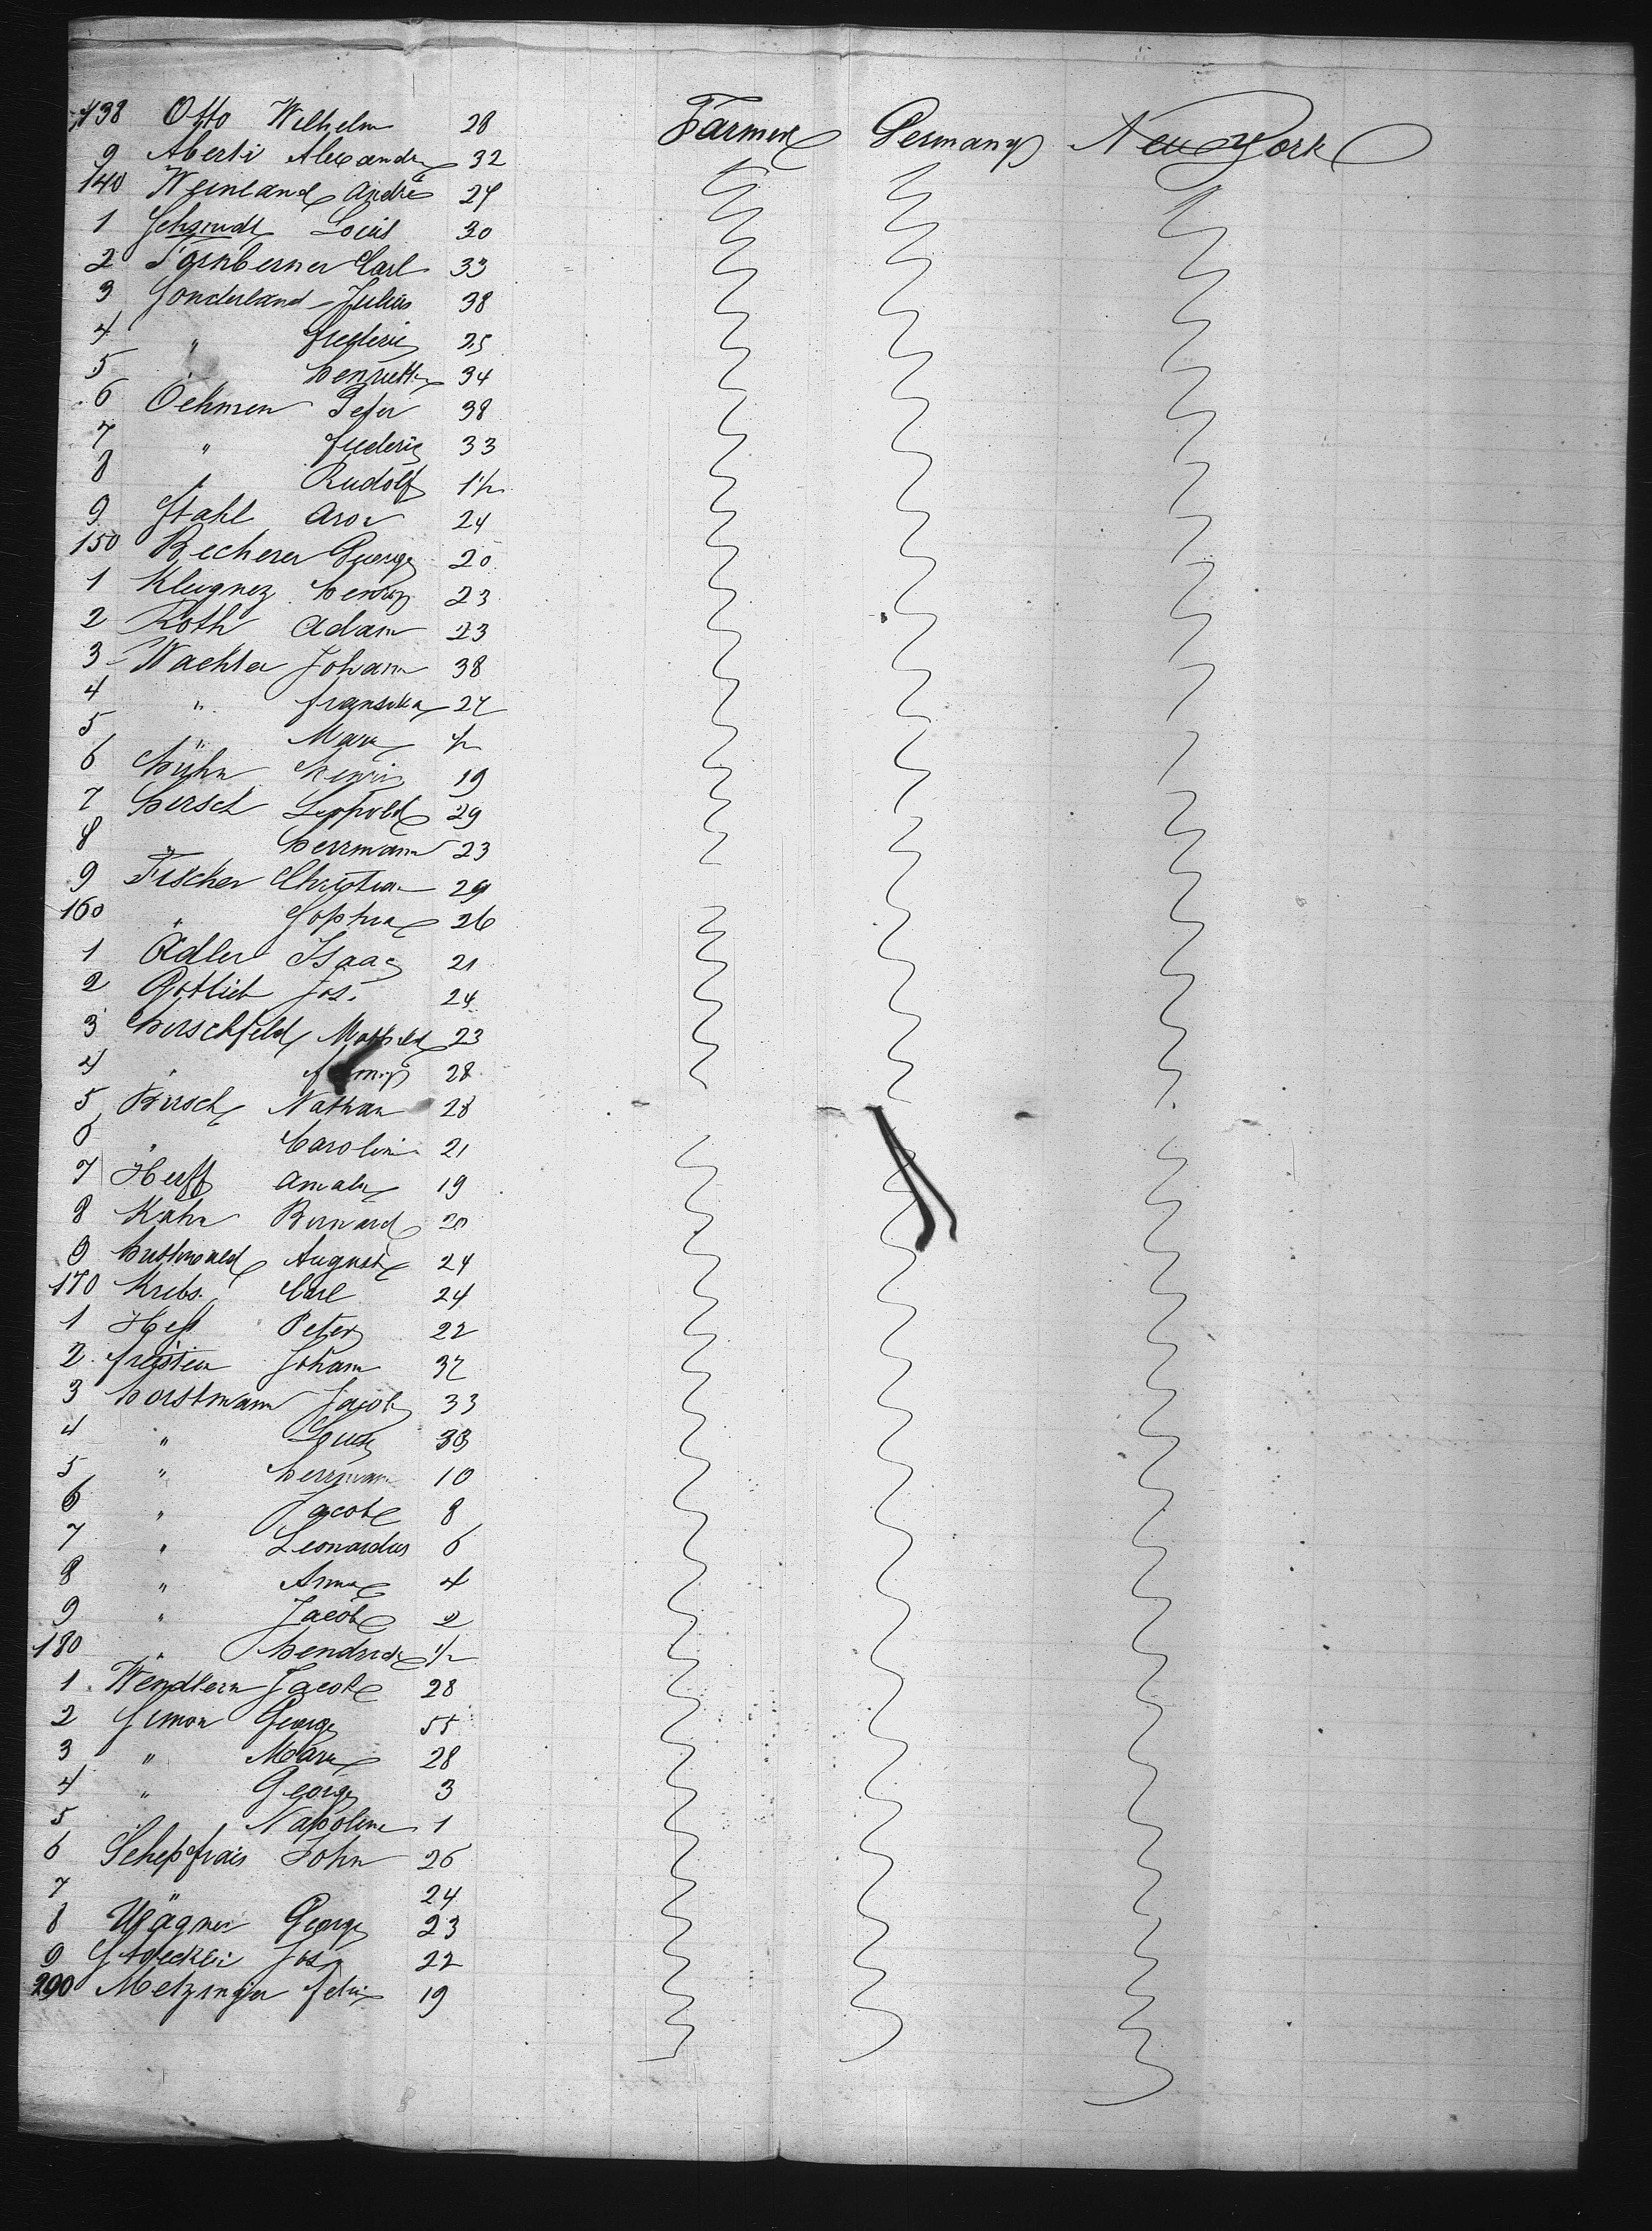 138 Otto Wilhelm 28 Farmer Germany New York
9 Aberti Alexander 32
140 Weinland André 24
1 Schmidt Louis 30
2 Carl 33
3 Sonderland Julius 38
4 " Frederic 25
5 " Henriette 34
6 Oehmen Peter 38
7 " Frederic 33
8 " Rudolf 1 1/2
9 Stahl Aron 24
150 Becherer George 20
1 Henry 23
2 Roth Adam 23
3 Wachter Johann 38
4 " Franziska 27
5 " Maria 1/2
6 Henri 19
7 Hersch Leopold 29
8 " Herrmann 23
9 Fischer Christian 29
160 " Sophia 26
1 Adler Isaac 21
2 Gotlieb Jos. 24
3 Hirschfeld Mathild 23
4 " 28
5 Hirsch Nathan 28
6 " Carolin 21
7 Herff Amalie 19
8 Kahn Bernard 20
9 August 24
170 Krebs Carl 24
1 Hess Peter 22
2 Johann 32
3 Horstmann Jacob 33
4 " Louise 33
5 " Herrmann 10
6 " Jacob 8
7 " Leonardus 6
8 " Anna 4
9 " Jacob 2
180 " Hendrick 1/2
1 Wendlern Jacob 28
2 Simon George 55
3 " Maria 28
4 " George 3
5 " Napoline 1
6 John 26
7 " 24
8 Wagner George 23
9 Stoeckli Jos. 22
290 Metzinger Felix 19